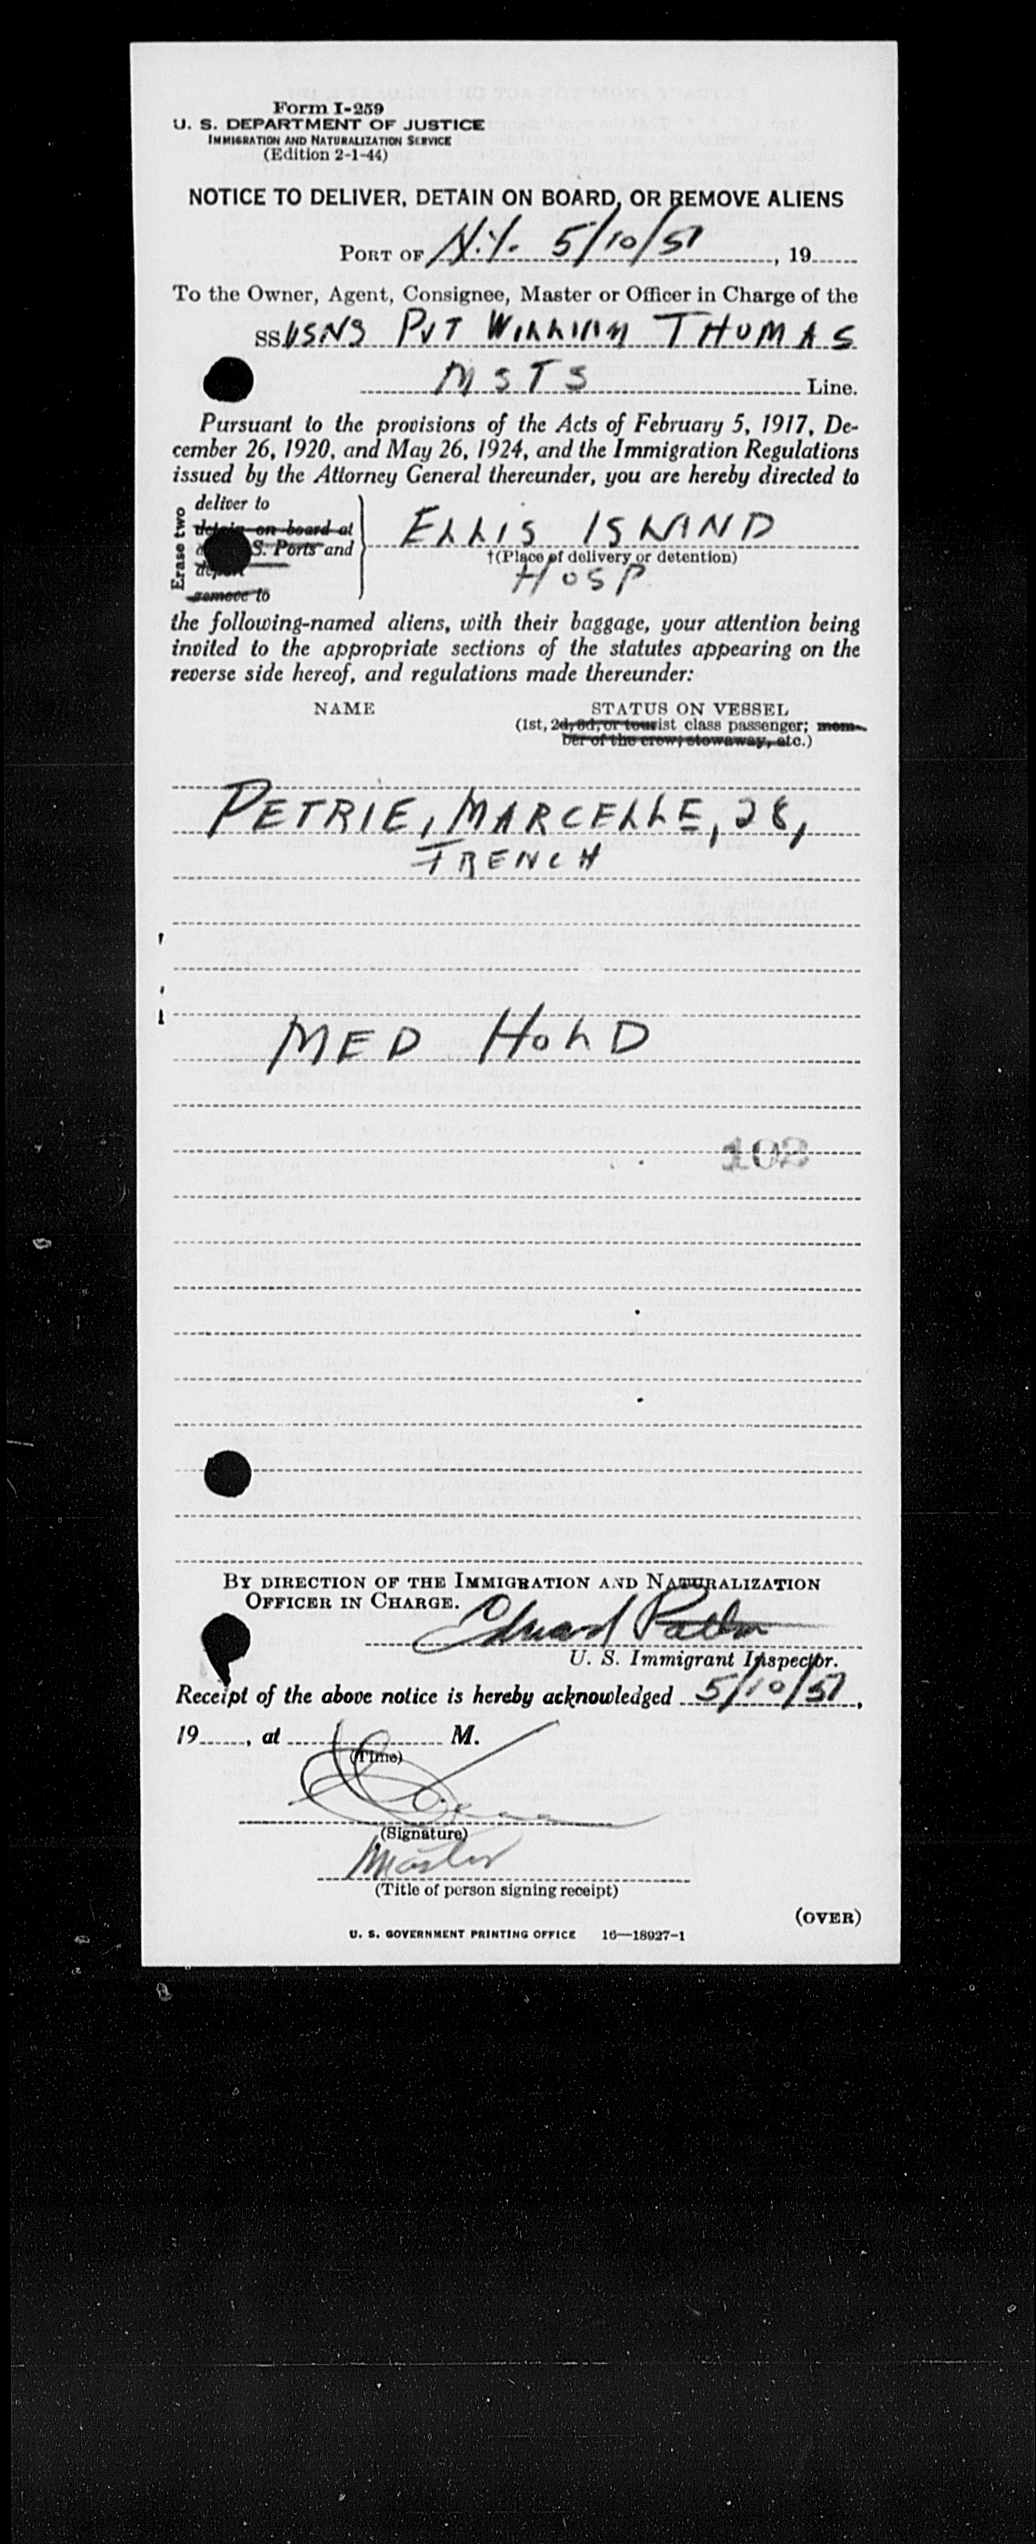 Form I-259
U. S. DEPARTMENT OF JUSTICE
IMMIGRATION AND NATURALIZATION SERVICE
(Edition 2-1-44)
NOTICE TO DELIVER, DETAIN ON BOARD, OR REMOVE ALIENS
PORT OF N.Y. 5/10/51, 19
To the Owner, Agent, Consignee, Master or Officer in Charge of the
SS USNS PVT WILLIAM THOMAS
MSTS Line.
Pursuant to the provisions of the Acts of February 5, 1917, De-
cember 26, 1920, and May 26, 1924, and the Immigration Regulations
issued by the Attorney General thereunder, you are hereby directed to
Erase two
deliver to
detain on board at
S. Ports and
deport
remove to
ELLIS ISLAND
†(Place of delivery or detention)
HOSP
the following-named aliens, with their baggage, your attention being
invited to the appropriate sections of the statutes appearing on the
reverse side hereof, and regulations made thereunder:
NAME STATUS ON VESSEL
(1st, 2d, 3d, or tourist class passenger; mem-
ber of the crew; stowaway, etc.)
PETRIE, MARCELLE, 28,
FRENCH
MED HOLD
102
BY DIRECTION OF THE IMMIGRATION AND NATURALIZATION
OFFICER IN CHARGE.
U. S. Immigrant Inspector.
Receipt of the above notice is hereby acknowledged 5/10/51,
19, at M.
(Time)
(Signature)
Master
(Title of person signing receipt)
(OVER)
U. S. GOVERNMENT PRINTING OFFICE 16—18927-1